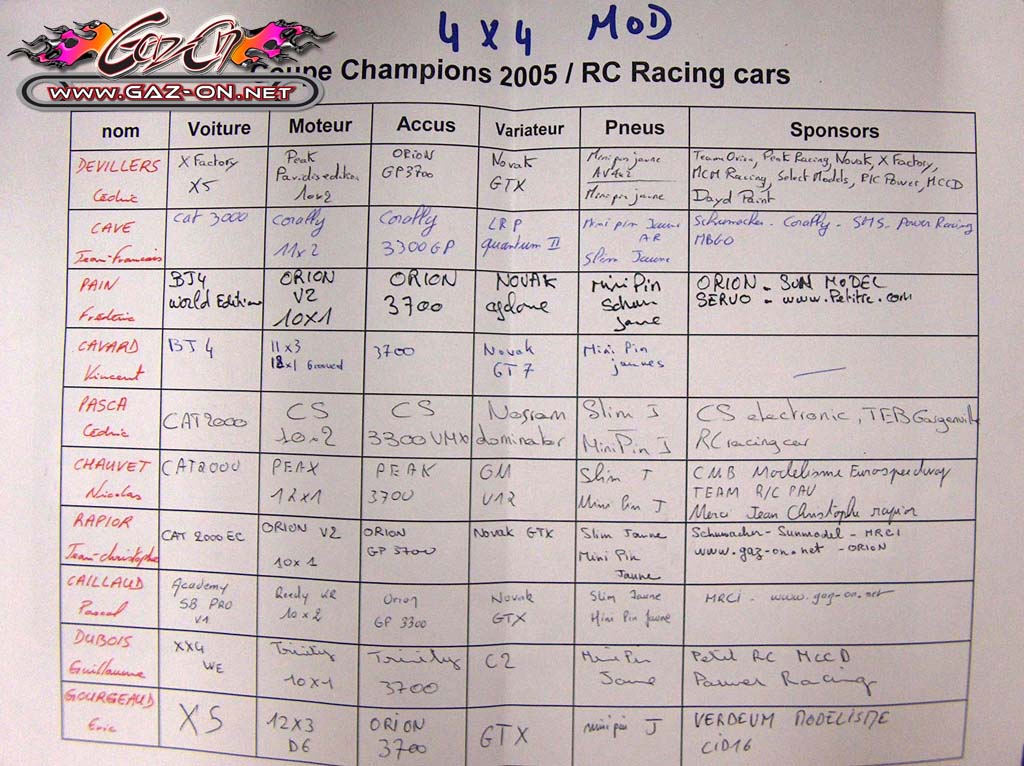 4 x 4 MOD
Gaz On
www.GAZ-ON.NET
Coupe Champions 2005 / RC Racing cars
nom Voiture Moteur Accus Variateur Pneus Sponsors
DEVILLERS Cédric
X Factory X5
Peak 10x2
ORION GP3700
Novak GTX
Mini pin jaune AV 1x2
Mini pin jaune
Team Orion, Peak Racing, Novak, X Factory,
MCM Racing, Select Models, PIC Power, MCCD
Dayd Paint
CAVE Jean-Francois
Cat 3000
Corally 11x2
Corally 3300 GP
LRP quantum II
Mini pin Jaune AR
Slim Jaune
Schumacher - Corally - SMS - Power Racing
MB60
PAIN Frédéric
BJ4 World Edition
ORION V2 10x1
ORION 3700
NOVAK cyclone
Mini Pin Schum jaune
ORION - SUN MODEL
SERVO - www.Petitrc.com
CAVARD Vincent
BJ4
11x3
3700
Novak GT7
Mini Pin jaunes
PASCA Cédric
CAT 2000
CS 10x2
CS 3300 VMX
Nosram dominator
Slim J
MiniPin J
CS electronic, TEB Gargenville
RC racing car
CHAUVET Nicolas
CAT2000
PEAK 12x1
PEAK 3700
GM V12
Slim J
Mini Pin J
CMB Modelisme Eurospeedway
TEAM R/C PAU
Merci Jean Christophe rapior
RAPIOR Jean-christophe
CAT 2000 EC
ORION V2 10x1
ORION GP 3700
Novak GTX
Slim Jaune
Mini Pin Jaune
Schumacher - Sunmodel - MRCI
www.gaz-on.net - ORION
CAILLAUD Pascal
Academy SB PRO V1
Reedy KR 10x2
Orion GP 3300
Novak GTX
Slim Jaune
Mini Pin Jaune
MRCI - www.gaz-on.net
DUBOIS Guillaume
XX4 WE
Trinity 10x1
Trinity 3700
C2
Mini Pin Jaune
Petit RC MCCD
Power Racing
GOURGEAUD Eric
X5
12x3 D6
ORION 3700
GTX
minipin J
VERDEUM MODELISME
CID16